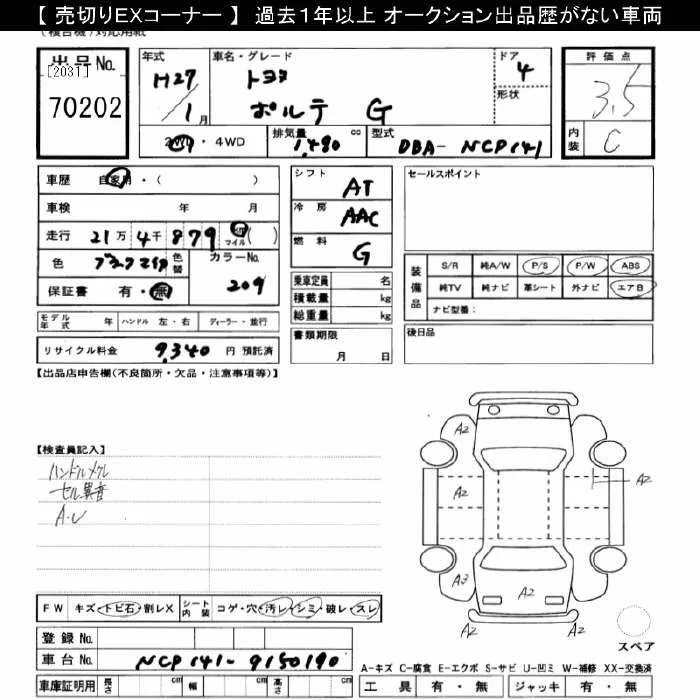 【 売切りEXコーナー 】 過去１年以上 オークション出品歴がない車両
出品No. [2031] 70202
年式 H27/1月
車名・グレード トヨタ ポルテ G
ドア 4 形状
2WD・4WD
排気量 1,490 cc
型式 DBA-NCP141
評価点 3.5
内装 C
車歴 自家用・( )
車検 年 月
走行 21万4千879 km マイル( )
色 ブラックマイカ 色替 カラーNo. 209
保証書 有・無
モデル年式 年 ハンドル 左・右 ディーラー・並行
リサイクル料金 9,340 円 預託済
シフト AT
冷房 AAC
燃料 G
乗車定員 名
積載量 kg
総重量 kg
書類期限 月 日
セールスポイント
装備品 S/R 純A/W P/S P/W ABS
純TV 純ナビ 革シート 外ナビ エアB
ナビ型番：
後日品
【出品店申告欄(不良箇所・欠品・注意事項等)】
【検査員記入】
ハンドルメクレ
セル異音
A・U
A2
A2
A2
A2
A3
A2
A2
A2
スペア
FW キズ・トビ石・割レX シート内装 コゲ・穴・汚レ・シミ・破レ・スレ
登録No.
車台No. NCP141-9150190
車庫証明用 長さ cm 幅 cm 高さ cm
A-キズ C-腐食 E-エクボ S-サビ U-凹ミ W-補修 XX-交換済
工具 有・無 ジャッキ 有・無